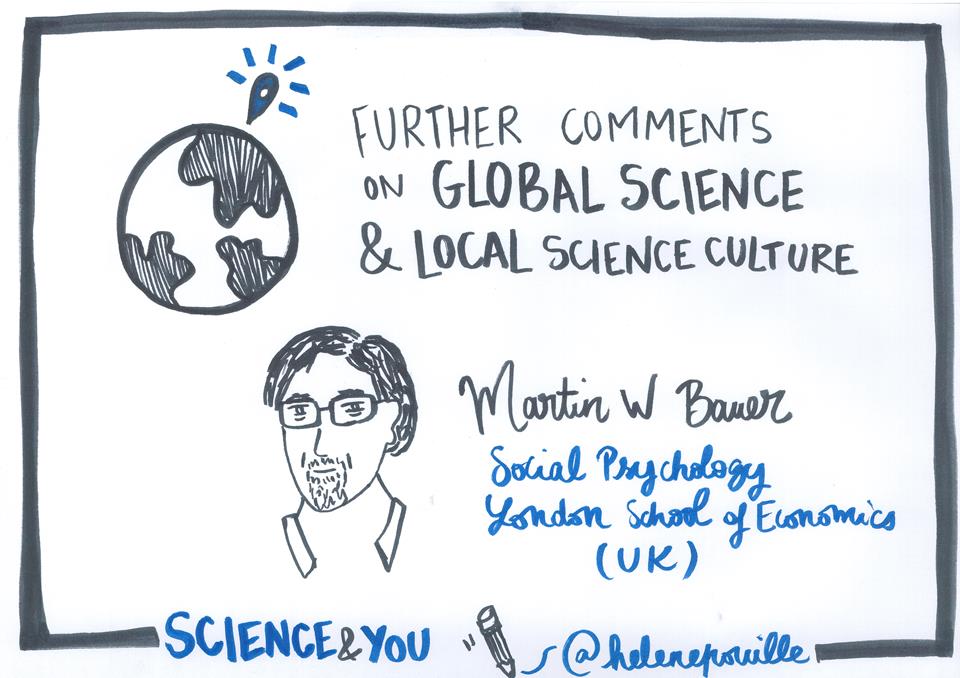 FURTHER COMMENTS
ON GLOBAL SCIENCE
& LOCAL SCIENCE CULTURE
Martin W Bauer
Social Psychology
London School of Economics
(UK)
SCIENCE&YOU
@helenepouille